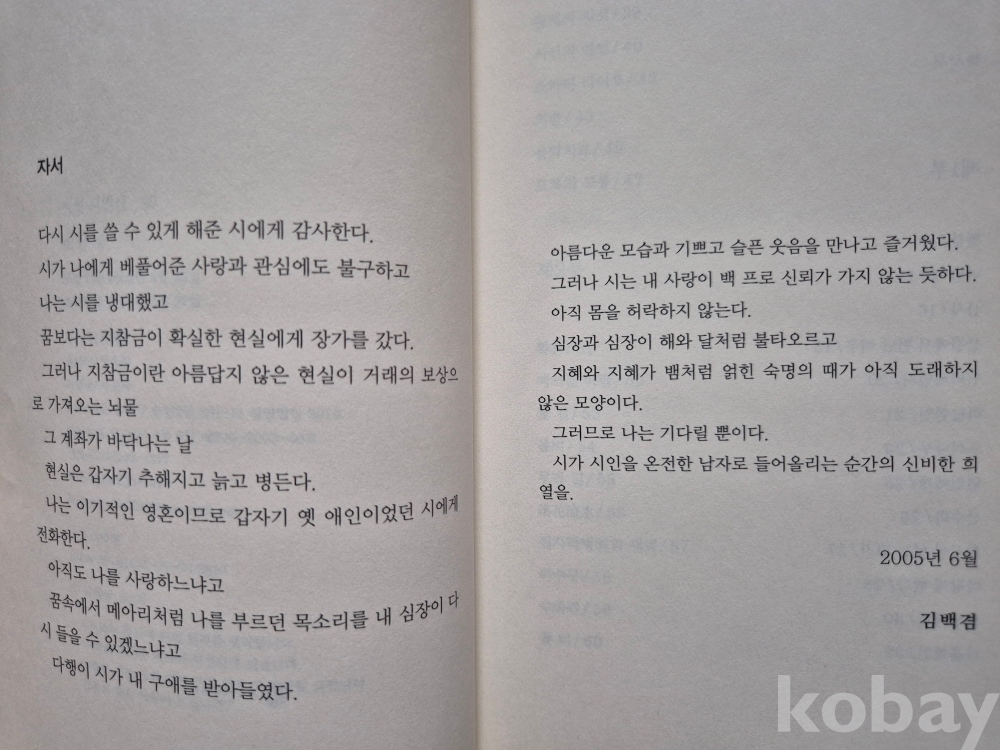 자서
다시 시를 쓸 수 있게 해준 시에게 감사한다.
시가 나에게 베풀어준 사랑과 관심에도 불구하고
나는 시를 냉대했고
꿈보다는 지참금이 확실한 현실에게 장가를 갔다.
그러나 지참금이란 아름답지 않은 현실이 거래의 보상으
로 가져오는 뇌물
그 계좌가 바닥나는 날
현실은 갑자기 추해지고 늙고 병든다.
나는 이기적인 영혼이므로 갑자기 옛 애인이었던 시에게
전화한다.
아직도 나를 사랑하느냐고
꿈속에서 메아리처럼 나를 부르던 목소리를 내 심장이 다
시 들을 수 있겠느냐고
다행이 시가 내 구애를 받아들였다.
아름다운 모습과 기쁘고 슬픈 웃음을 만나고 즐거웠다.
그러나 시는 내 사랑이 백 프로 신뢰가 가지 않는 듯하다.
아직 몸을 허락하지 않는다.
심장과 심장이 해와 달처럼 불타오르고
지혜와 지혜가 뱀처럼 얽힌 숙명의 때가 아직 도래하지
않은 모양이다.
그러므로 나는 기다릴 뿐이다.
시가 시인을 온전한 남자로 들어올리는 순간의 신비한 희
열을.
2005년 6월
김백겸
kobay